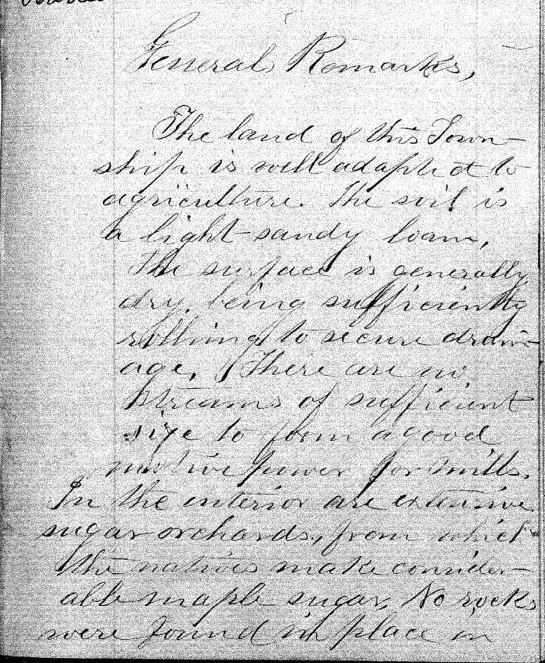 General Remarks,
The land of this Town-
ship is well adapted to
agriculture. The soil is
a light sandy loam.
The surface is generally
dry, being sufficiently
rolling to secure drain-
age. There are no
streams of sufficient
size to form a good
motive power for mills.
In the interior are extensive
sugar orchards, from which
the natives make consider-
able maple sugar. No rocks
were found in place in